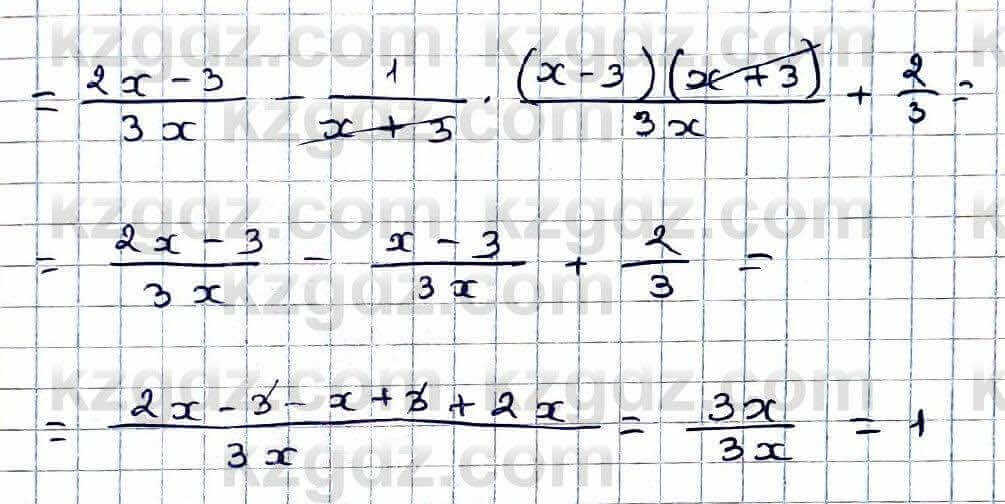 = (2x - 3)/(3x) - 1/(x + 3) · ((x - 3)(x + 3))/(3x) + 2/3 =
= (2x - 3)/(3x) - (x - 3)/(3x) + 2/3 =
= (2x - 3 - x + 3 + 2x)/(3x) = 3x/3x = 1
kzgdz.com kzgdz.com
kzgdz.com
kzgdz.com kzgdz.com
kzgdz.com
kzgdz.com kzgdz.com
kzgdz.com